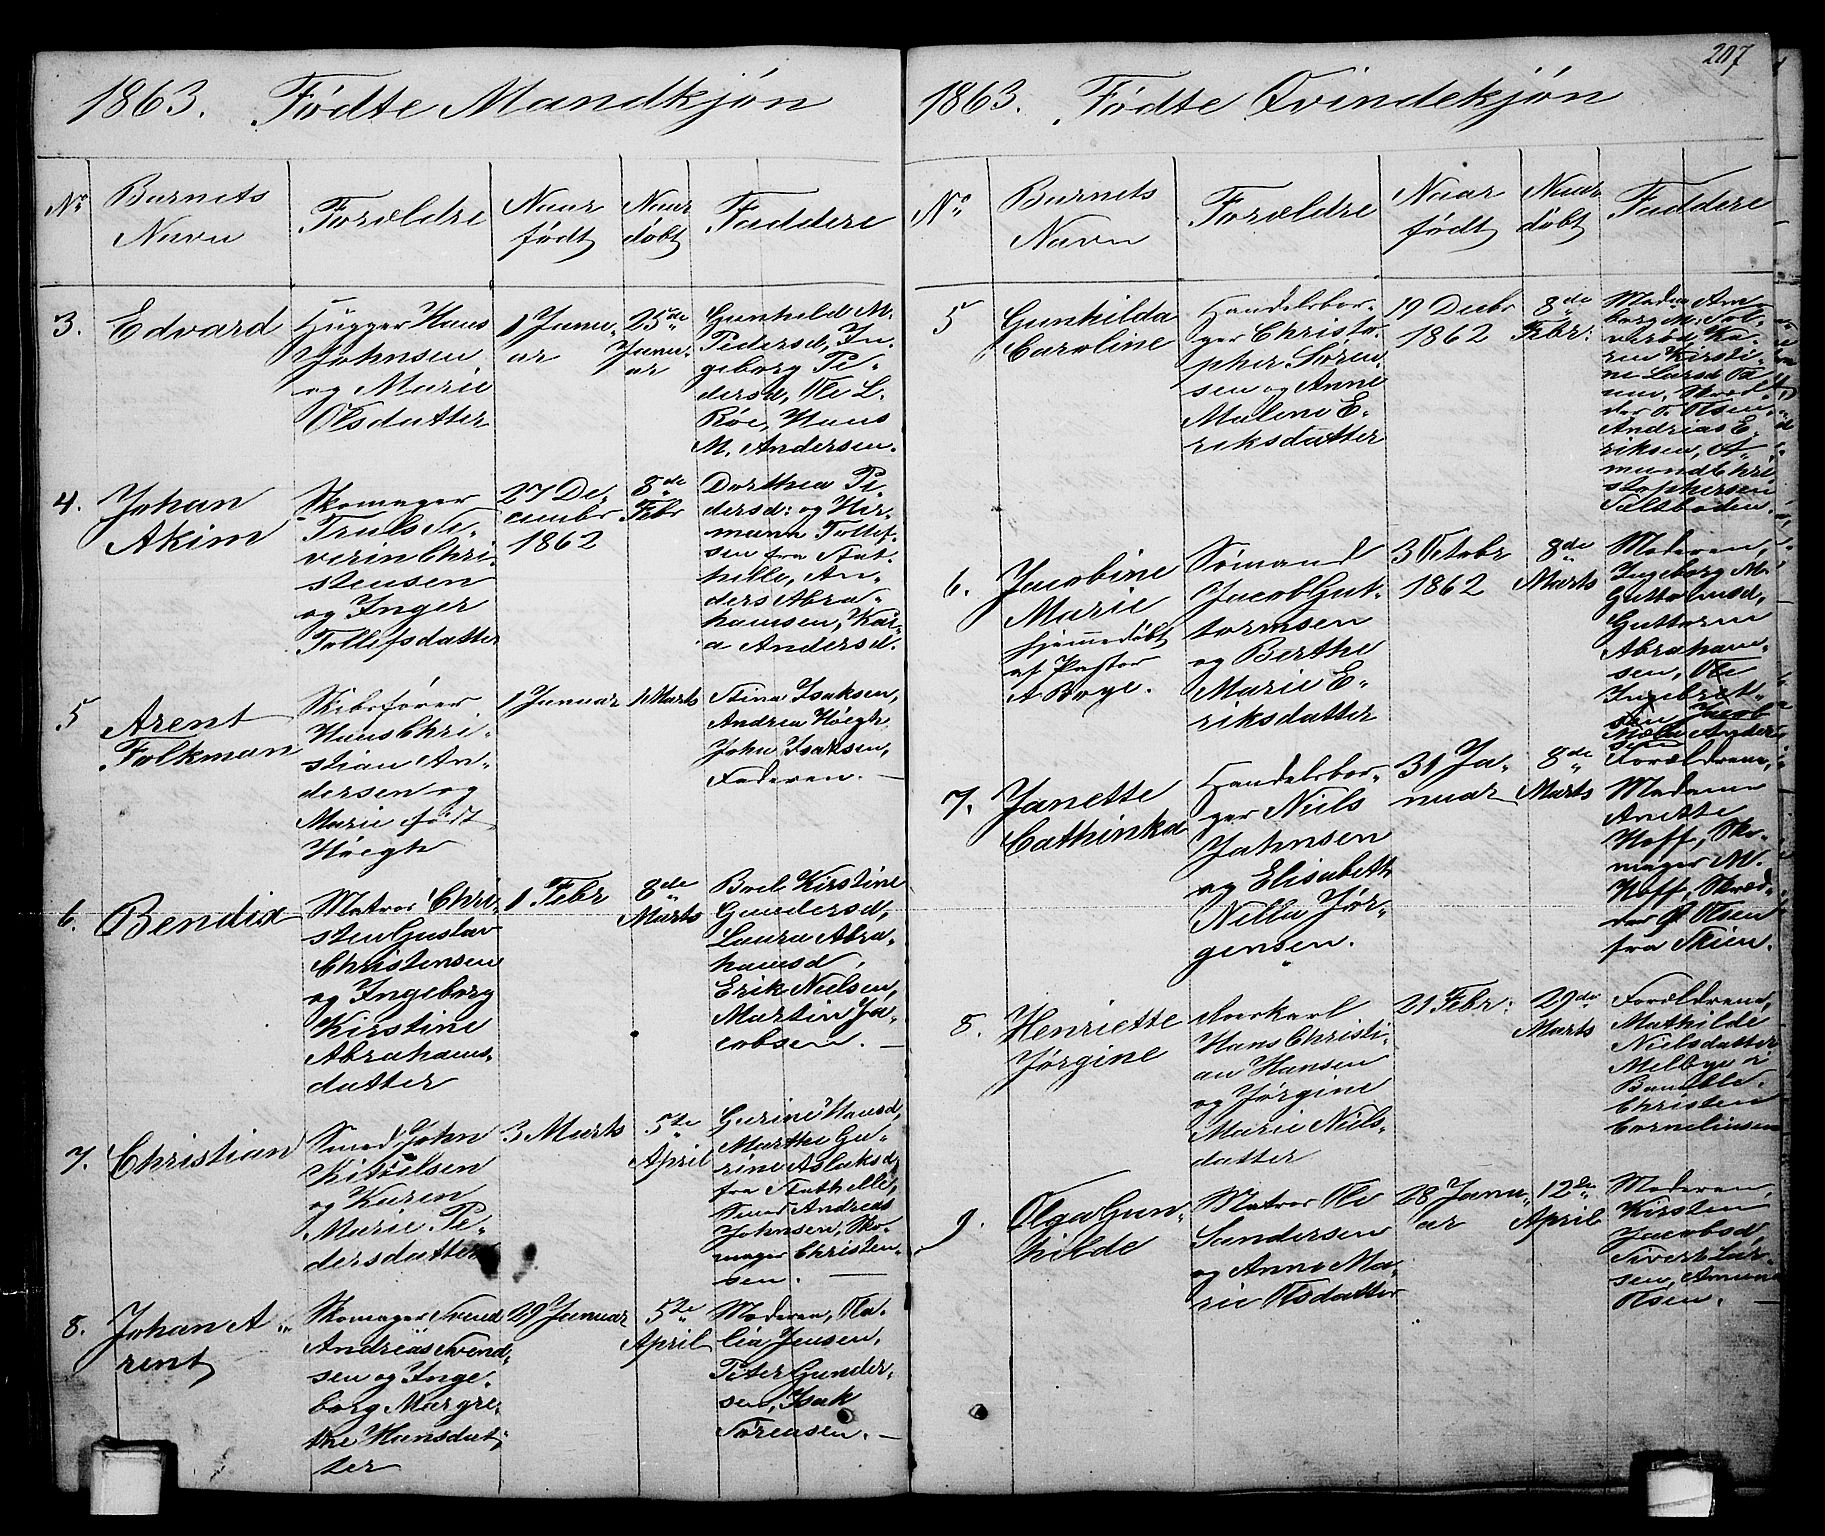 207
1863. Födte Mandkjön
No
Barnets
Navn
Forældre
Naar
födt
Naar
döbt
Faddere
3.
Edvard
Hugger Hans
Johnsen
og Marie
Olsdatter
1 Janu-
ar
25de
Janu-
ar
Gunhild M.
Pedersd, In-
geborg Pe-
dersd, Ole L.
Röe, Hans
M. Andersen.
4.
Johan
Akim
Skomager
Truls Se-
verin Chri-
stensen
og Inger
Tollefsdatter
27 De-
cembr
1862
8de
Febr
Dorthea Pe-
dersd: og Her-
mann Tollef-
sen fra Stat-
helle, An-
ders Abra-
hamsen, Kar-
a Andersd.
5
Arent
Folkman
Skibsförer
Hans Chri-
stian An-
dersen og
Marie födt
Höegh
1 Januar
1 Marts
Stina Isaksen,
Andrea Höegh,
John Isaksen,
Faderen. —
6.
Bendix
Matros Chri-
sten Gustav
Christensen
og Ingeborg
Kirstine
Abrahams-
datter
1 Febr
8de
Marts
Boel Kirstine
Gundersd,
Laura Abra-
hamsd,
Erik Nielsen,
Martin Ja-
cobsen. —
7.
Christian
Smed John
Kittilsen
og Karen
Marie Pe-
dersdatter
3 Marts
5te
April
Gurine Hansd,
Marthe Gu-
rine Aslaksd
fra Stathelle,
Smed Andreas
Johnsen, Sko-
mager Christen-
sen. —
8.
Johan A-
rent
Skomager Svend
Andreas Svend-
sen og Inge-
borg Margre-
the Hansdat-
ter
29 Januar
5te
April
Moderen, Ola-
lia Jensen,
Peter Gunder-
sen, Isak
Sörensen. —
1863. Födte Qvindekjön
No
Barnets
Navn
Forældre
Naar
födt
Naar
döbt
Faddere
5
Gunhilda
Caroline
Handelsbor-
ger Christo-
pher Sören-
sen og Anne
Malene E-
riksdatter
19 Decbr
1862
8de
Febr:
Ka-
ren Kirsti-
ne Larsd
der O. Olsen,
Andreas E-
riksen, A-
mund Chri-
stophersen
6.
Jacobine
Marie
hjemmedöbt
af Pastor
A Boye.
Sömand
Jacob Gut-
tormsen
og Berthe
Marie E-
riksdatter
3 Octobr
1862
8de
Marts
Moderen,
Ingeborg M.
Guttormsd,
Guttorm
Abraham-
sen, Ole
Ingebret-
sen Jacob
Ander
sen
7.
Janette
Cathinka
Handelsbor-
ger Niels
Jahnsen
og Elisabeth
Nilla Jör-
gensen.
31 Ja-
nuar
8de
Marts
Forældrene,
Madame
Anette
Hoff, Sko-
mager M.
Hoff, Skræd-
der O Olsen
fra Skien.
8.
Henriette
Jörgine
Hans Christi-
an Hansen
og Jörgine
Marie Niels-
datter
21 Febr:
29de
Marts
Forældrene,
Mathilde
Nielsdatter
Melbye i
Bamble.
Christen
Corneliussen
9.
Olga Gun-
hilde
Matros Ole
Sandersen
og Anne Ma-
rie Olsdatter
28 Janu-
ar
12te
April
Moderen,
Kirsten
Jacobsd
Sivert Lar-
sen, Amund
Olsen. —